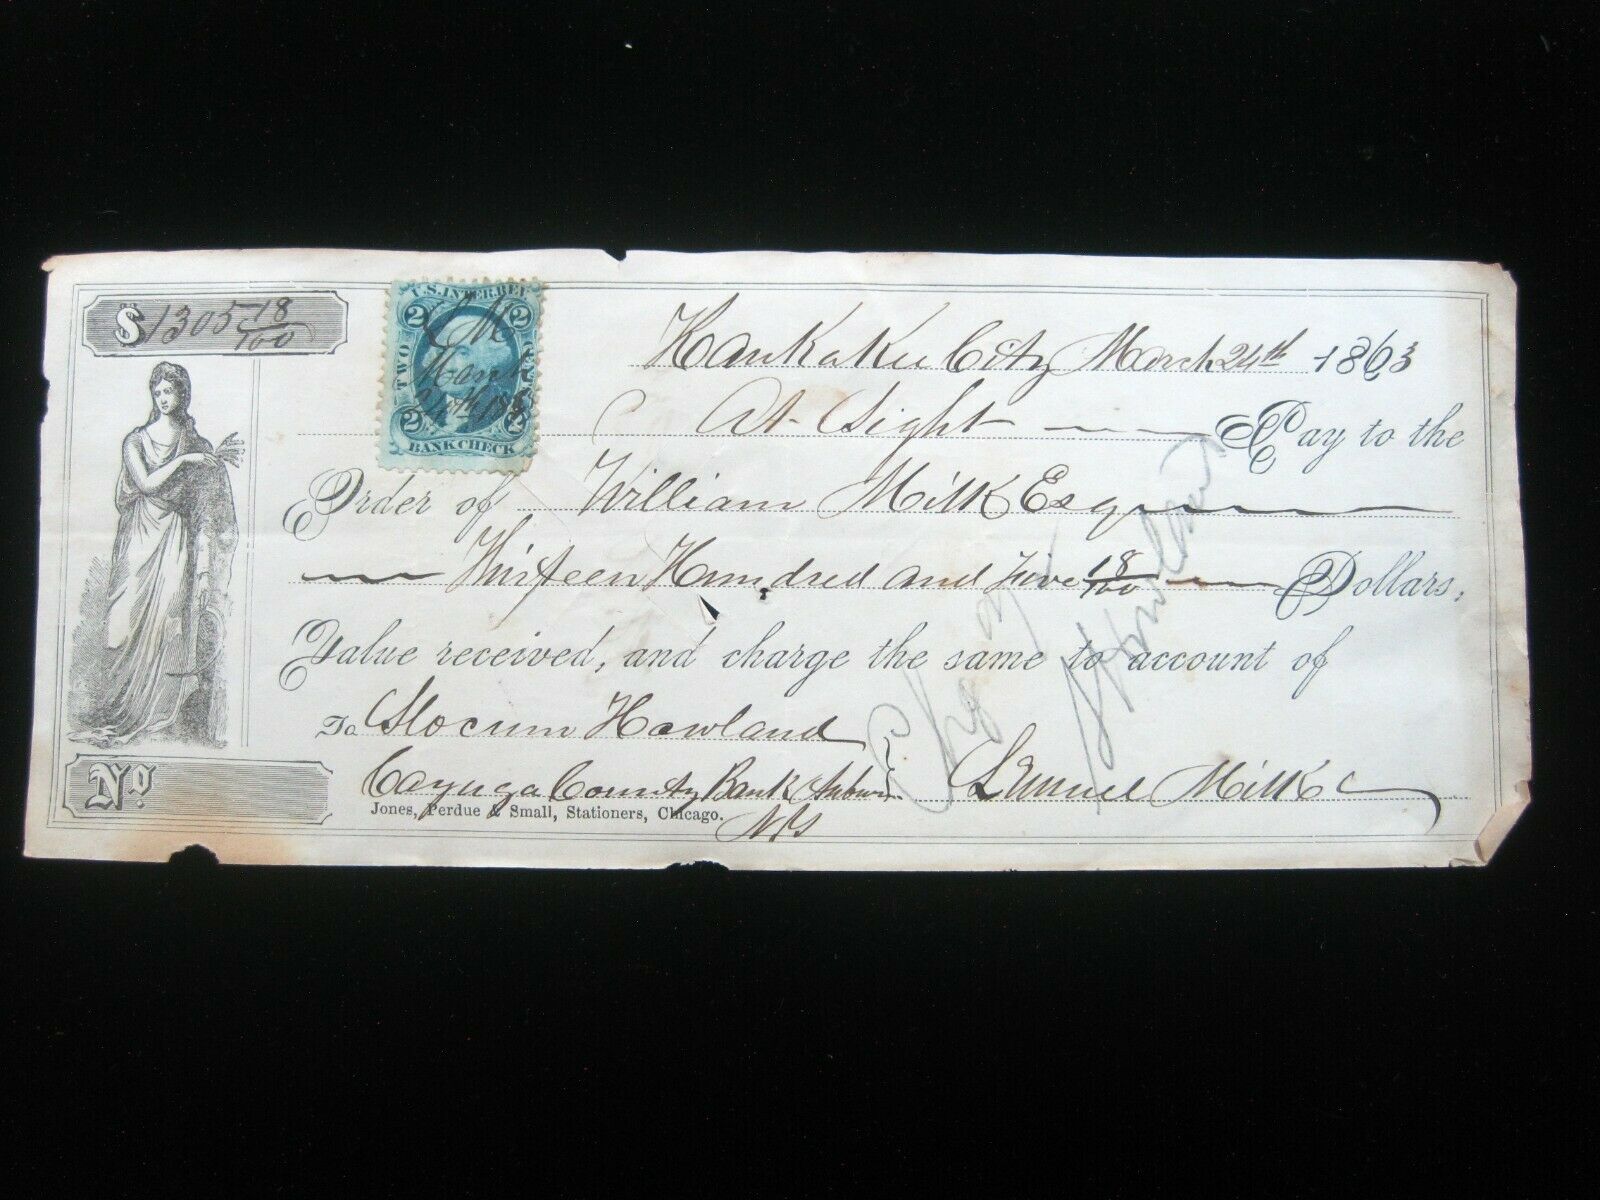 $1305 18/100
U.S. INTER. REV.
2 2
TWO
L M
March
24th 186
2 2
BANK CHECK
Kankakee City March 24th 1863
At Sight Pay to the
Order of William Milk Esq
Thirteen Hundred and Five 18/100 Dollars,
Value received, and charge the same to account of
To Slocum Howland
Cayuga County Bank Auburn Lemuel Milk
NY
Jones, Perdue & Small, Stationers, Chicago.
No.
Charge
S Howland